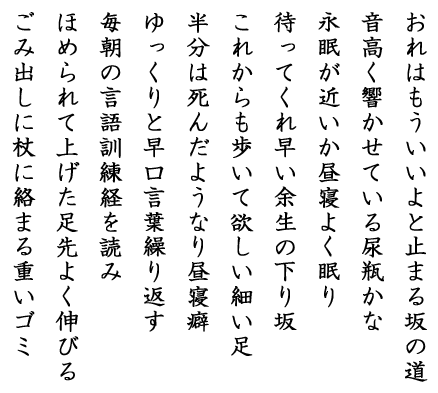 おれはもういいよと止まる坂の道
音高く響かせている尿瓶かな
永眠が近いか昼寝よく眠り
待ってくれ早い余生の下り坂
これからも歩いて欲しい細い足
半分は死んだようなり昼寝癖
ゆっくりと早口言葉繰り返す
毎朝の言語訓練経を読み
ほめられて上げた足先よく伸びる
ごみ出しに杖に絡まる重いゴミ